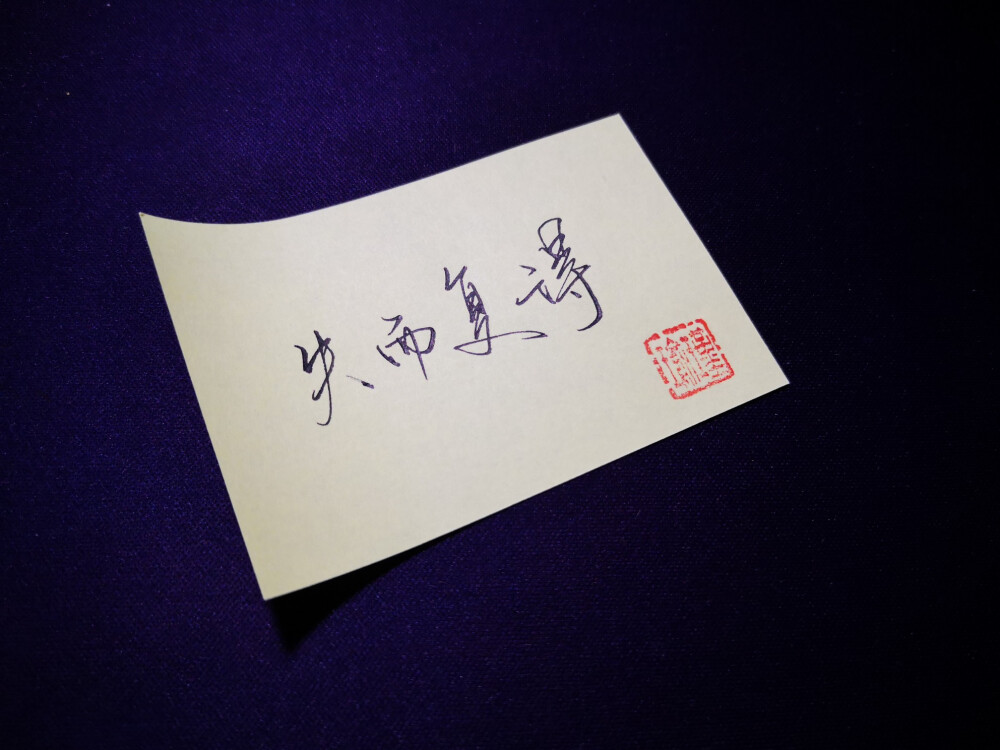 失而复得